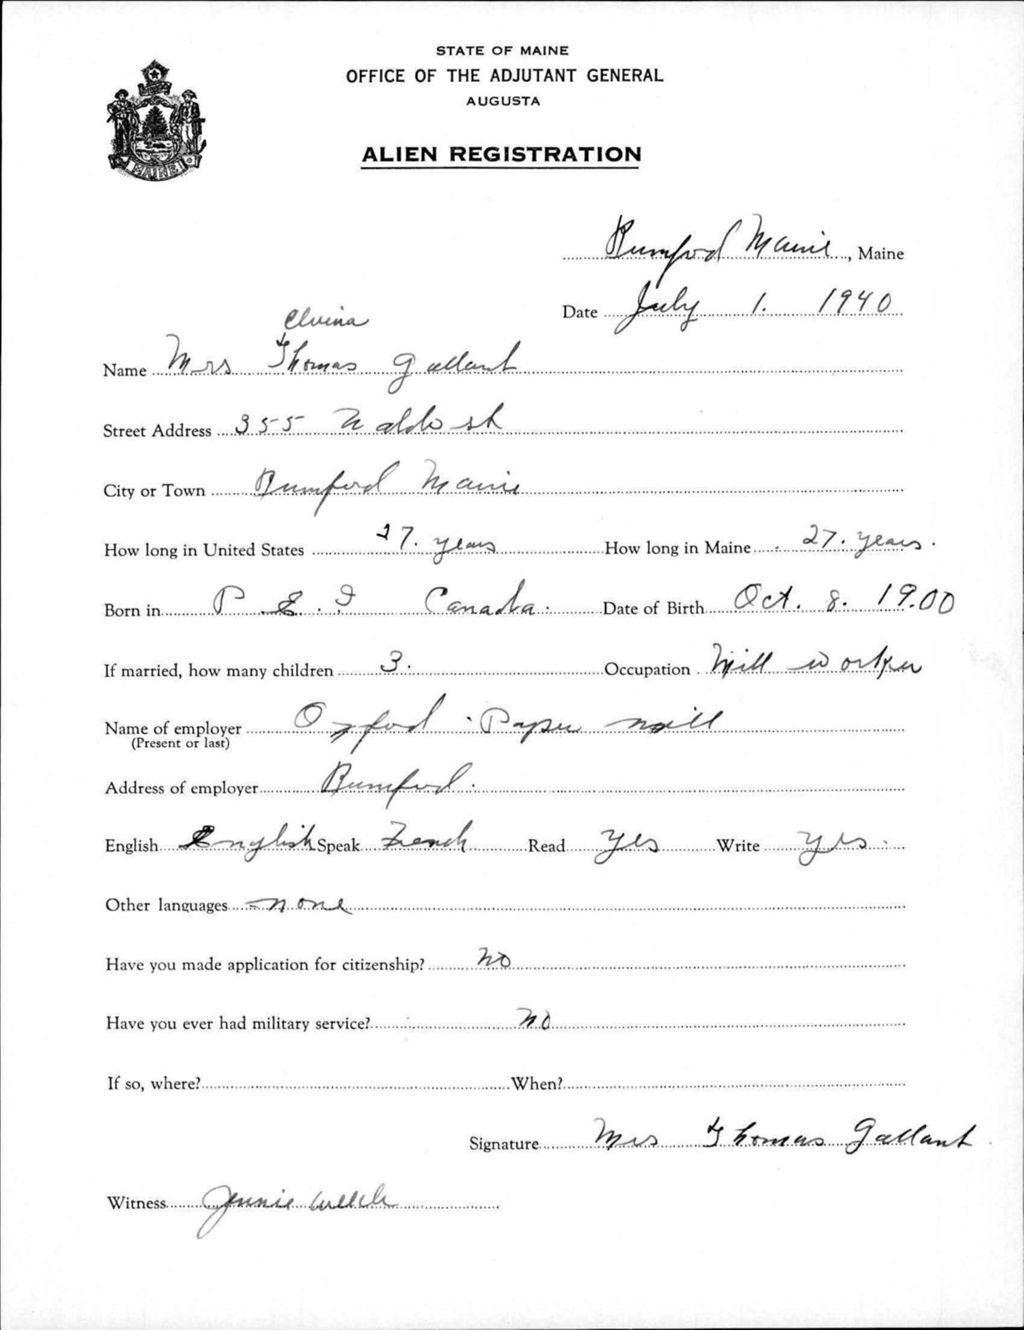 STATE OF MAINE
OFFICE OF THE ADJUTANT GENERAL
AUGUSTA
ALIEN REGISTRATION
MAINE
Rumford Maine, Maine
Date July 1. 1940
Elvina
Name Mrs Thomas Gallant
Street Address 355 Waldo st
City or Town Rumford Maine
How long in United States 27. years How long in Maine 27. years.
Born in P E. I Canada. Date of Birth Oct. 8. 1900
If married, how many children 3. Occupation Mill worker
Name of employer Oxford Paper mill
(Present or last)
Address of employer Rumford.
English English Speak French Read Yes Write Yes.
Other languages none
Have you made application for citizenship? No
Have you ever had military service? No
If so, where? When?
Signature Mrs Thomas Gallant
Witness Jennie Welch